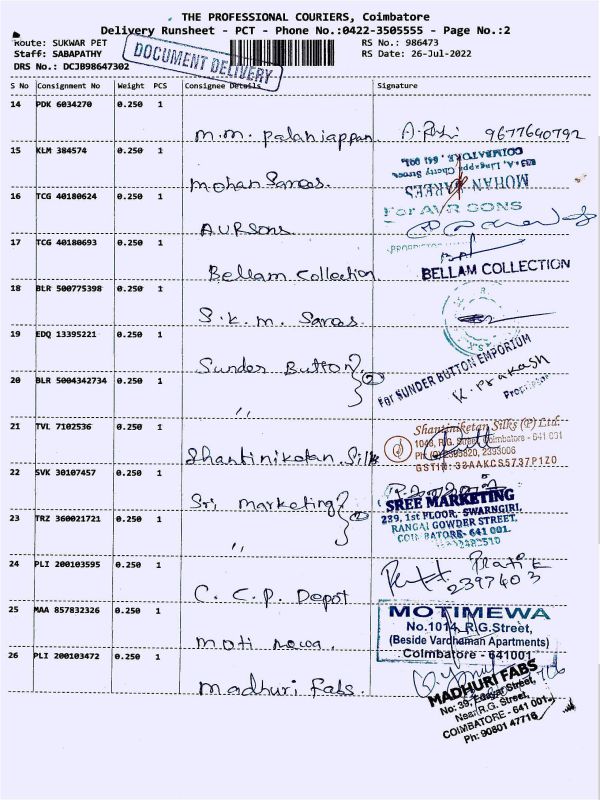 THE PROFESSIONAL COURIERS, Coimbatore
Delivery Runsheet - PCT - Phone No.:0422-3505555 - Page No.:2
Route: SUKWAR PET RS No.: 986473
Staff: SABAPATHY RS Date: 26-Jul-2022
DRS No.: DCJB98647302
DOCUMENT DELIVERY
S No Consignment No Weight PCS Consignee Details Signature
14 PDK 6034270 0.250 1
M.M. Palaniappan 9677640792
15 KLM 384574 0.250 1
COIMBATORE - 641 001.
Mohan Sarees.
MOHAN SAREES
16 TCG 40180624 0.250 1
For AVR SONS
AVR Sons
17 TCG 40180693 0.250 1
Bellam Collection
BELLAM COLLECTION
18 BLR 500775398 0.250 1
S.K.M. Sarees.
19 EDQ 13395221 0.250 1
Sunder Button } 2
For SUNDER BUTTON EMPORIUM
K. Prakash
Proprietor
20 BLR 5004342734 0.250 1
"
21 TVL 7102536 0.250 1
Shantiniketan Silks (P) Ltd.
1046, R.G. Street, Coimbatore - 641 001
2393006
GSTIN: 33AAKCS5737P1Z0
Shantiniketan Silks
22 SVK 30107457 0.250 1
Sri Marketing } 2
SREE MARKETING
239, 1st FLOOR, SWARNGIRI,
RANGAI GOWDER STREET,
COIMBATORE- 641 001.
23 TRZ 360021721 0.250 1
"
24 PLI 200103595 0.250 1
Pratik
2397603
C. C. P. Depot
25 MAA 857832326 0.250 1
MOTIMEWA
No.1014, R.G.Street,
(Beside Vardhaman Apartments)
Coimbatore - 641001
Moti newa.
26 PLI 200103472 0.250 1
Madhuri Fabs.
MADHURI FABS
No: 39, Edayar Street,
Near R.G. Street,
COIMBATORE - 641 001.
Ph: 90801 47716